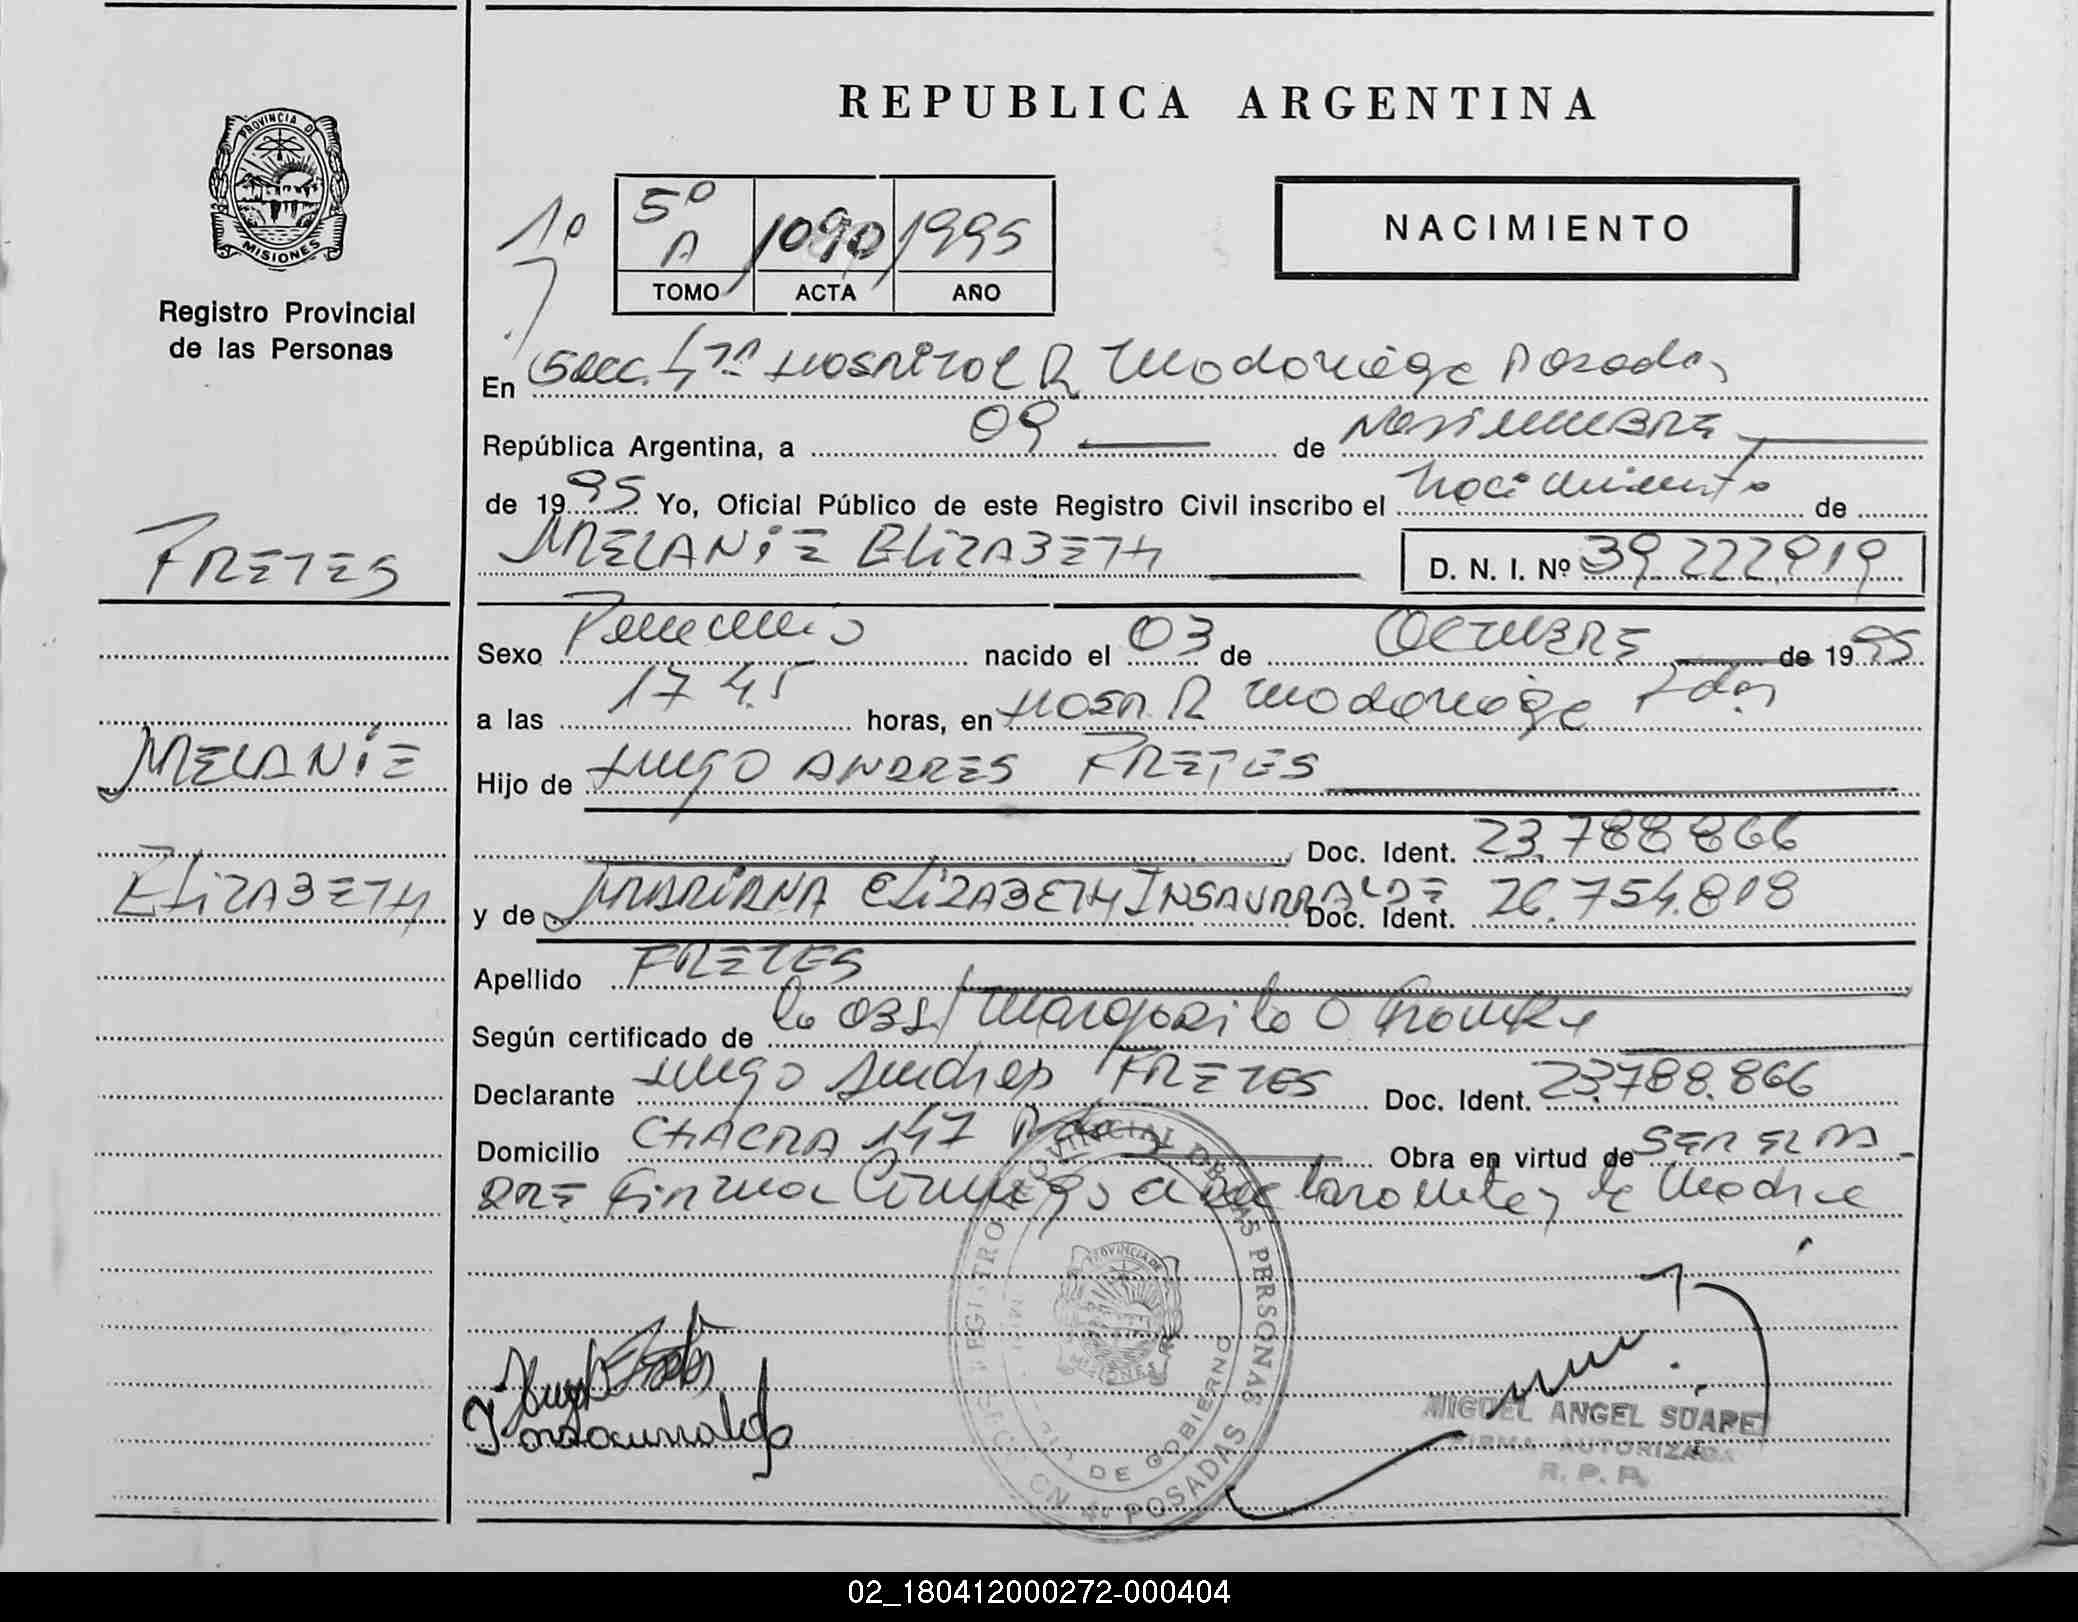 REPUBLICA ARGENTINA
PROVINCIA DE
MISIONES
Registro Provincial
de las Personas
1º
5º
A
1090
1995
TOMO
ACTA
AÑO
NACIMIENTO
En Secc. 4ta Hospital R Madariaga Posadas
República Argentina, a 09 de Noviembre
de 1995 Yo, Oficial Público de este Registro Civil inscribo el Nacimiento de
FRETES
MELANIE ELIZABETH
D. N. I. Nº 39.222.919
Sexo Femenino nacido el 03 de OCTUBRE de 1995
a las 17 45 horas, en Hosp. R Madariaga Pdas
MELANIE
Hijo de HUGO ANDRES FRETES
Doc. Ident. 23.788866
ELIZABETH
y de MARIANA ELIZABETH INSAURRALDE Doc. Ident. 26.754.818
Apellido FRETES
Según certificado de la obst Margarita O
Declarante Hugo Andres FRETES Doc. Ident. 23.788.866
Domicilio CHACRA 147 Pdas Obra en virtud de SER EL PA
DRE Firma Conmigo el declarante y la Madre
REGISTRO PROVINCIAL DE LAS PERSONAS
PROVINCIA DE
MISIONES
DE GOBIERNO
POSADAS
MIGUEL ANGEL SUAREZ
FIRMA AUTORIZADA
R. P. P.
02_180412000272-000404